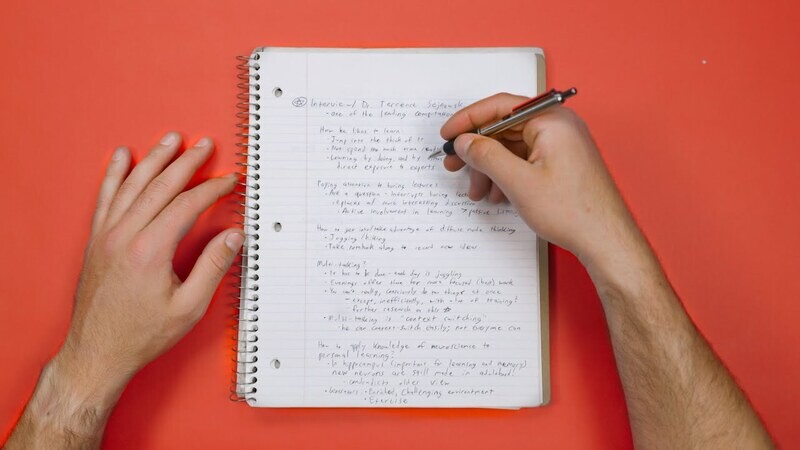 Interview Dr. Terrence Sejnowski
- one of the leading computational
How he likes to learn:
- Jump into the thick of it
- Not spend too much time
- Learning by doing, and by
direct exposure to experts
Paying attention to boring lectures:
- Ask a question - interrupts boring lecture
- Replaces w/ more interesting discussion
- Active involvement in learning > passive
How to you take advantage of diffuse mode thinking
- Jogging/hiking
- Take notebook along to record new ideas
Multi-tasking?
- It has to be done - each day is juggling
- Evenings offer time for more focused work
- You can't really, consciously do two things at once
- except, inefficiently, with a lot of training!
further research on this
- Multi-tasking is "context switching"
- he can context-switch easily; not everyone can
How to apply knowledge of neuroscience to
personal learning?
- In hippocampus (important for learning and memory)
new neurons are still made in adulthood!
- contradicts older view
- Enriched, challenging environment
- Exercise